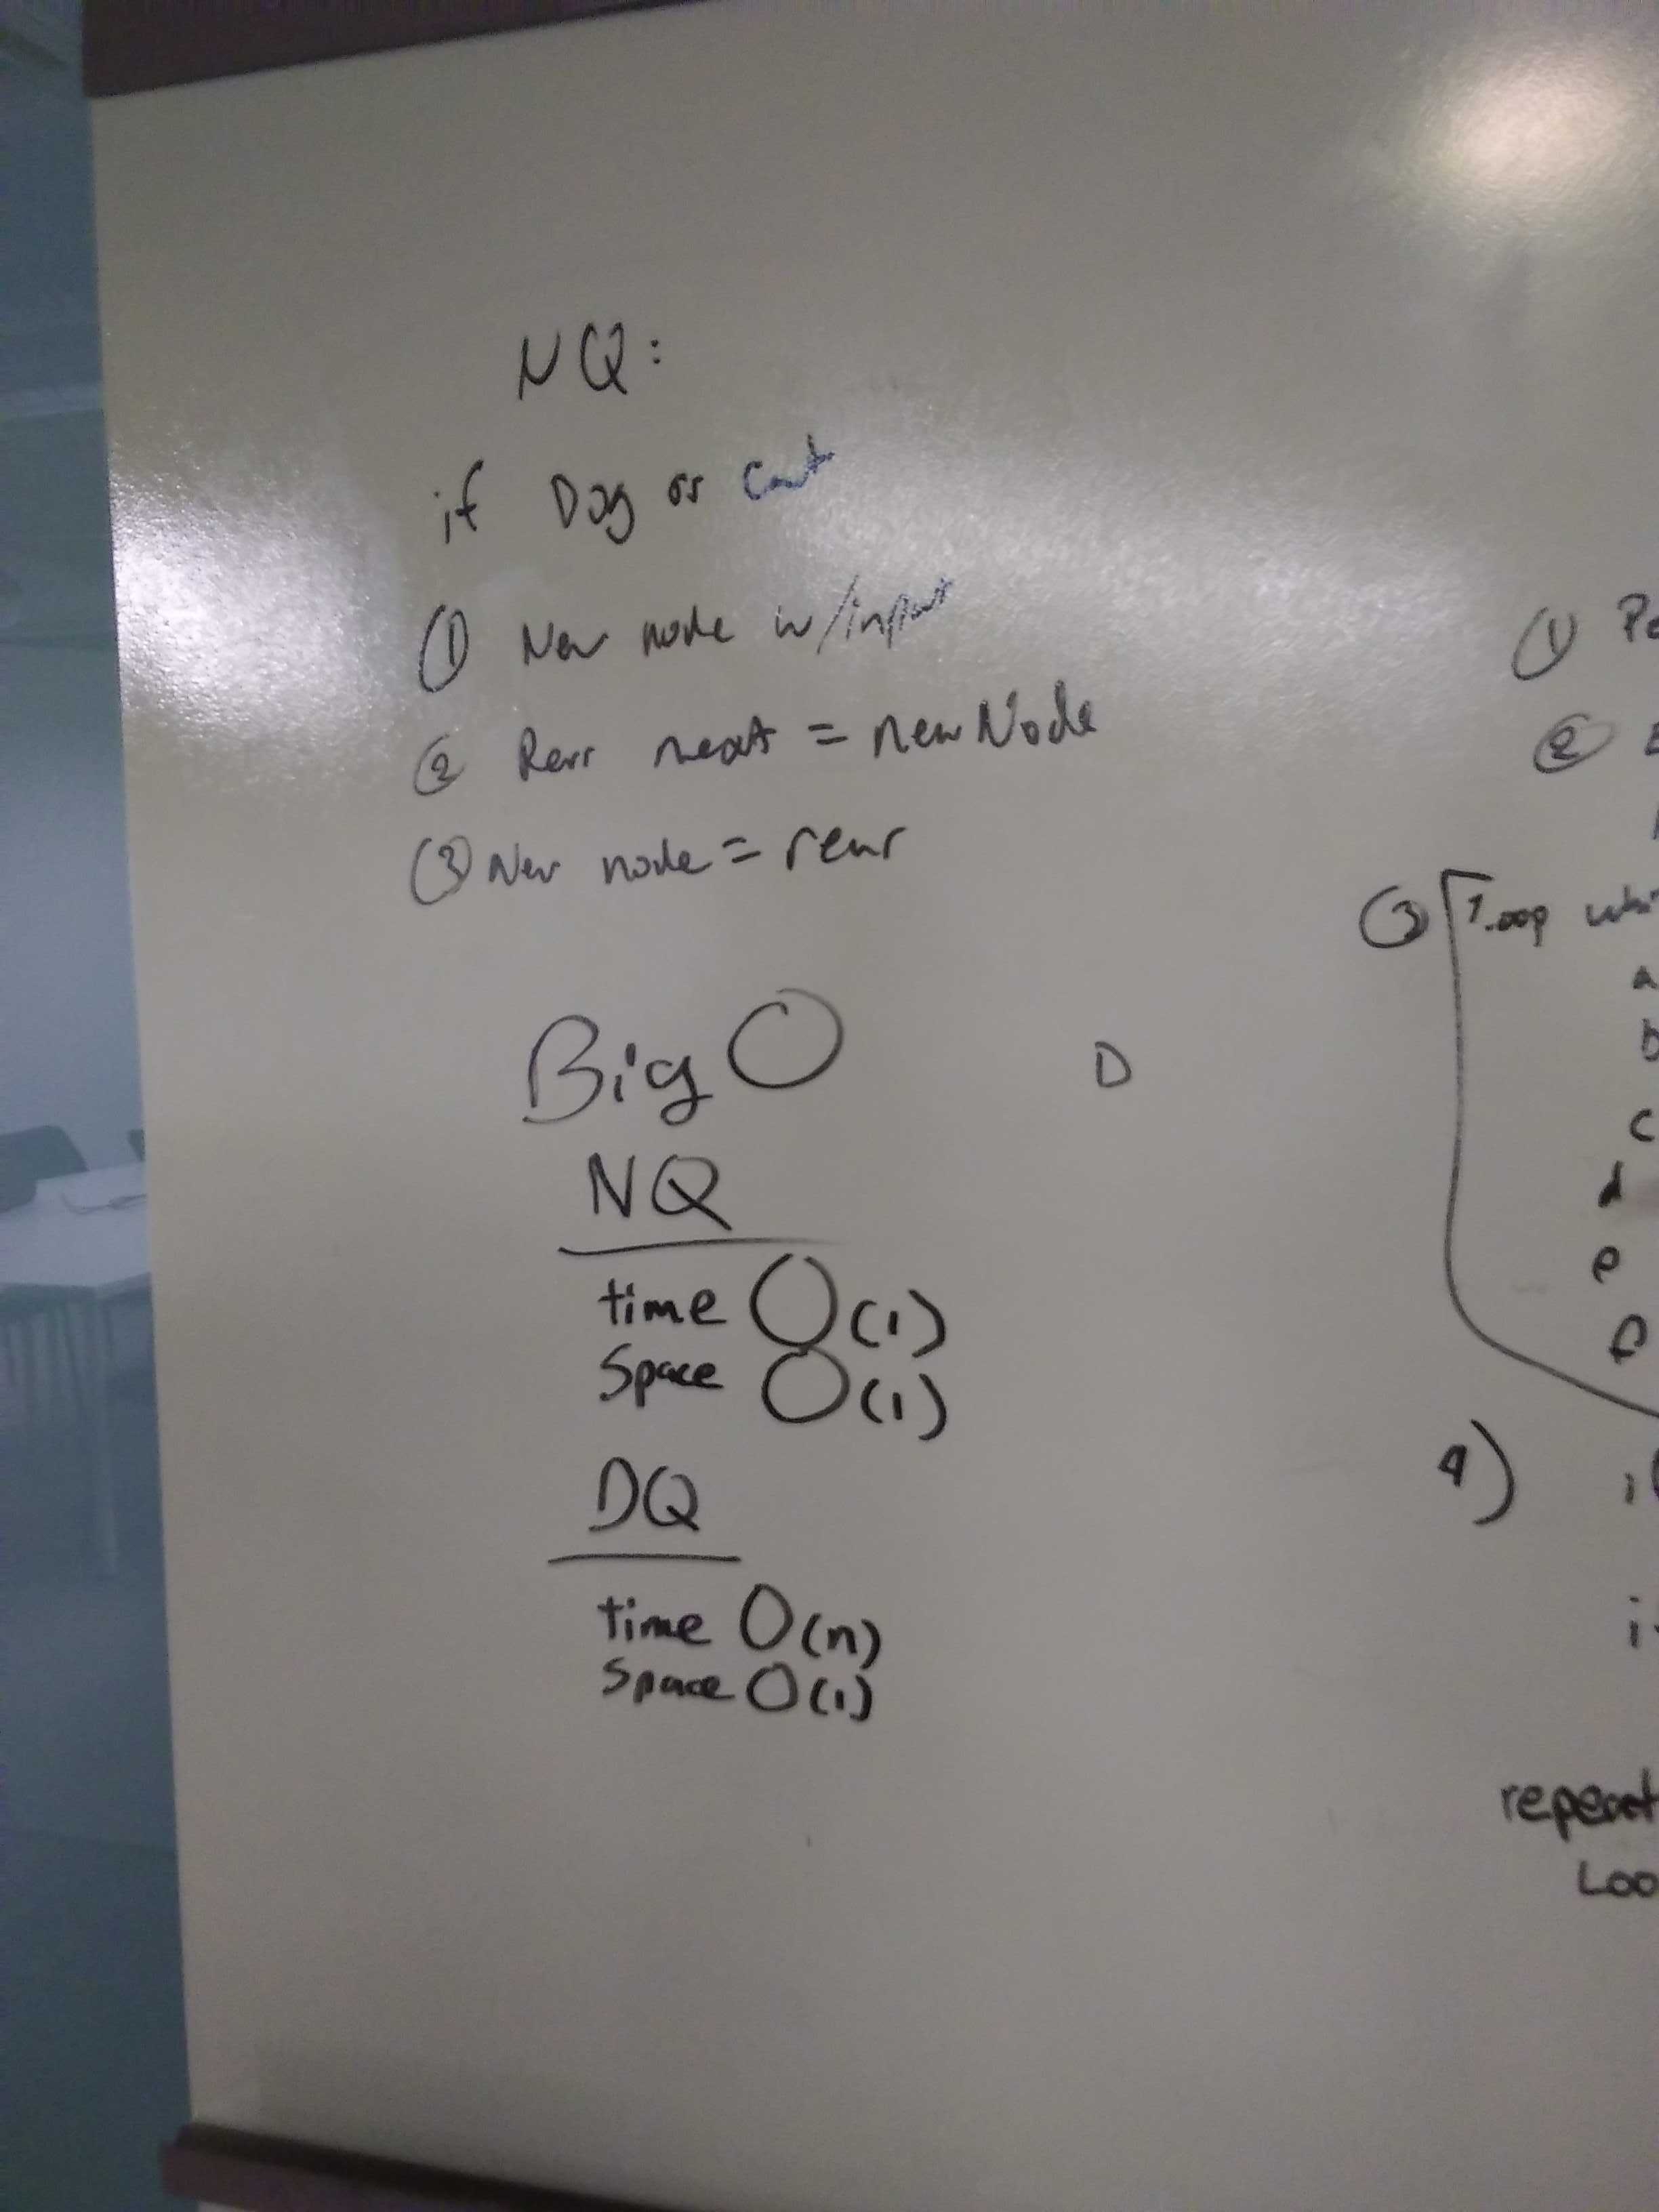 NQ:
if Dog or Cat
① New node w/input
② Rear next = newNode
③ New node = rear
Big O
NQ
time O(1)
Space O(1)
DQ
time O(n)
Space O(1)
D
①
②
③ Loop
a
b
c
d
e
f
4)
repeat
Loo